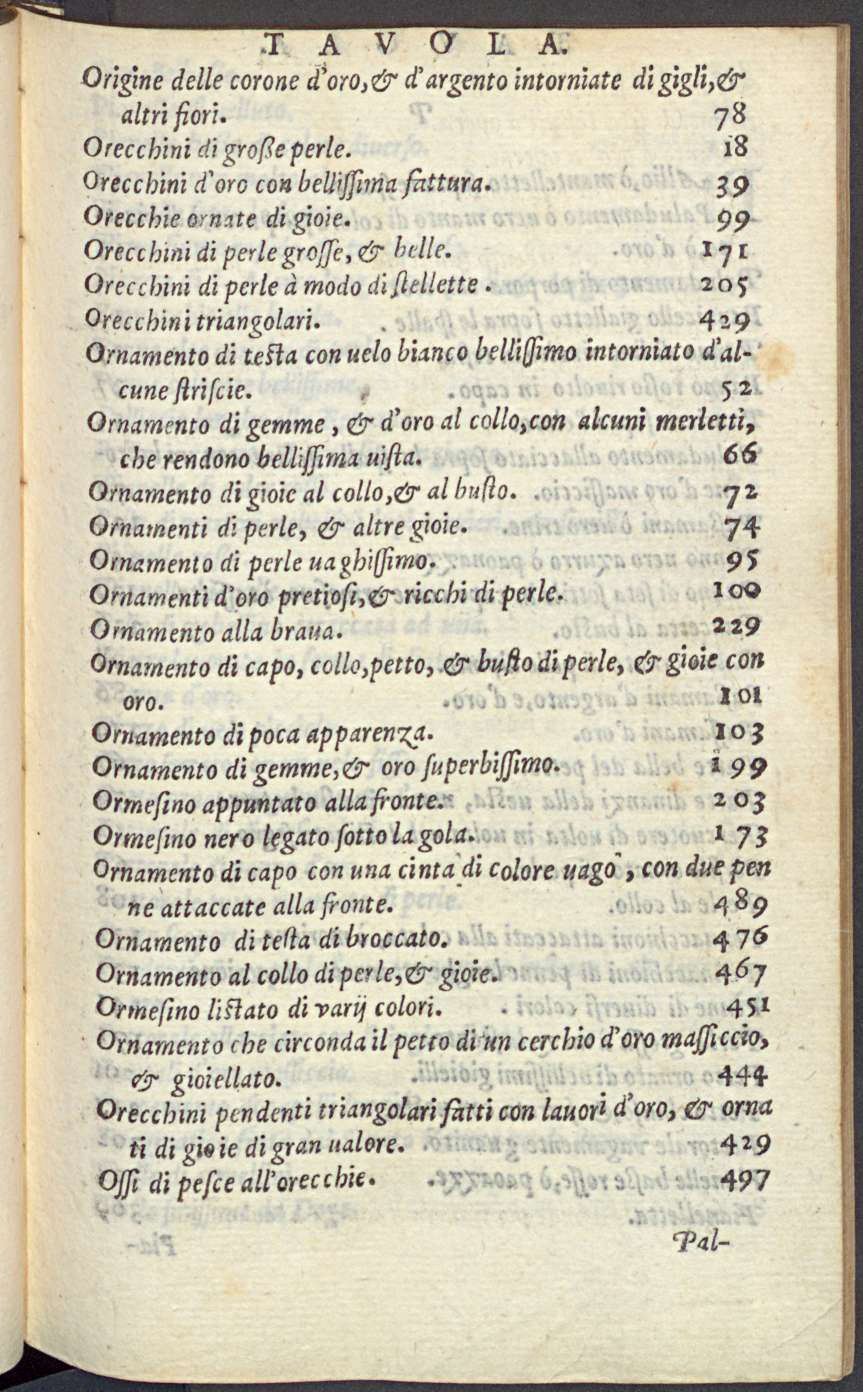 TAVOLA.
Origine delle corone d'oro, & d'argento intorniate di gigli, &
altri fiori. 78
Orecchini di große perle. 18
Orecchini d'oro con belliſſima fattura. 39
Orecchie ornate di gioie. 99
Orecchini di perle groſſe, & belle. 171
Orecchini di perle à modo di ſtellette. 205
Orecchini triangolari. 429
Ornamento di teſta con uelo bianco belliſſimo intorniato d'al-
cune ſtriſcie. 52
Ornamento di gemme, & d'oro al collo, con alcuni merletti,
che rendono belliſſima uiſta. 66
Ornamento di gioie al collo, & al buſto. 72
Ornamenti di perle, & altre gioie. 74
Ornamento di perle uaghiſſimo. 95
Ornamenti d'oro pretioſi, & ricchi di perle. 100
Ornamento alla braua. 229
Ornamento di capo, collo, petto, & buſto di perle, & gioie con
oro. 101
Ornamento di poca apparenza. 103
Ornamento di gemme, & oro ſuperbiſſimo. 199
Ormeſino appuntato alla fronte. 203
Ormeſino nero legato ſotto la gola. 173
Ornamento di capo con una cinta di colore uago, con due pen
ne attaccate alla fronte. 489
Ornamento di teſta di broccato. 476
Ornamento al collo di perle, & gioie. 467
Ormeſino liſtato di varij colori. 451
Ornamento che circonda il petto di un cerchio d'oro maſſiccio,
& gioiellato. 444
Orecchini pendenti triangolari fatti con lauori d'oro, & orna
ti di gioie di gran ualore. 429
Oſſi di peſce all'orecchie. 497
Pal-